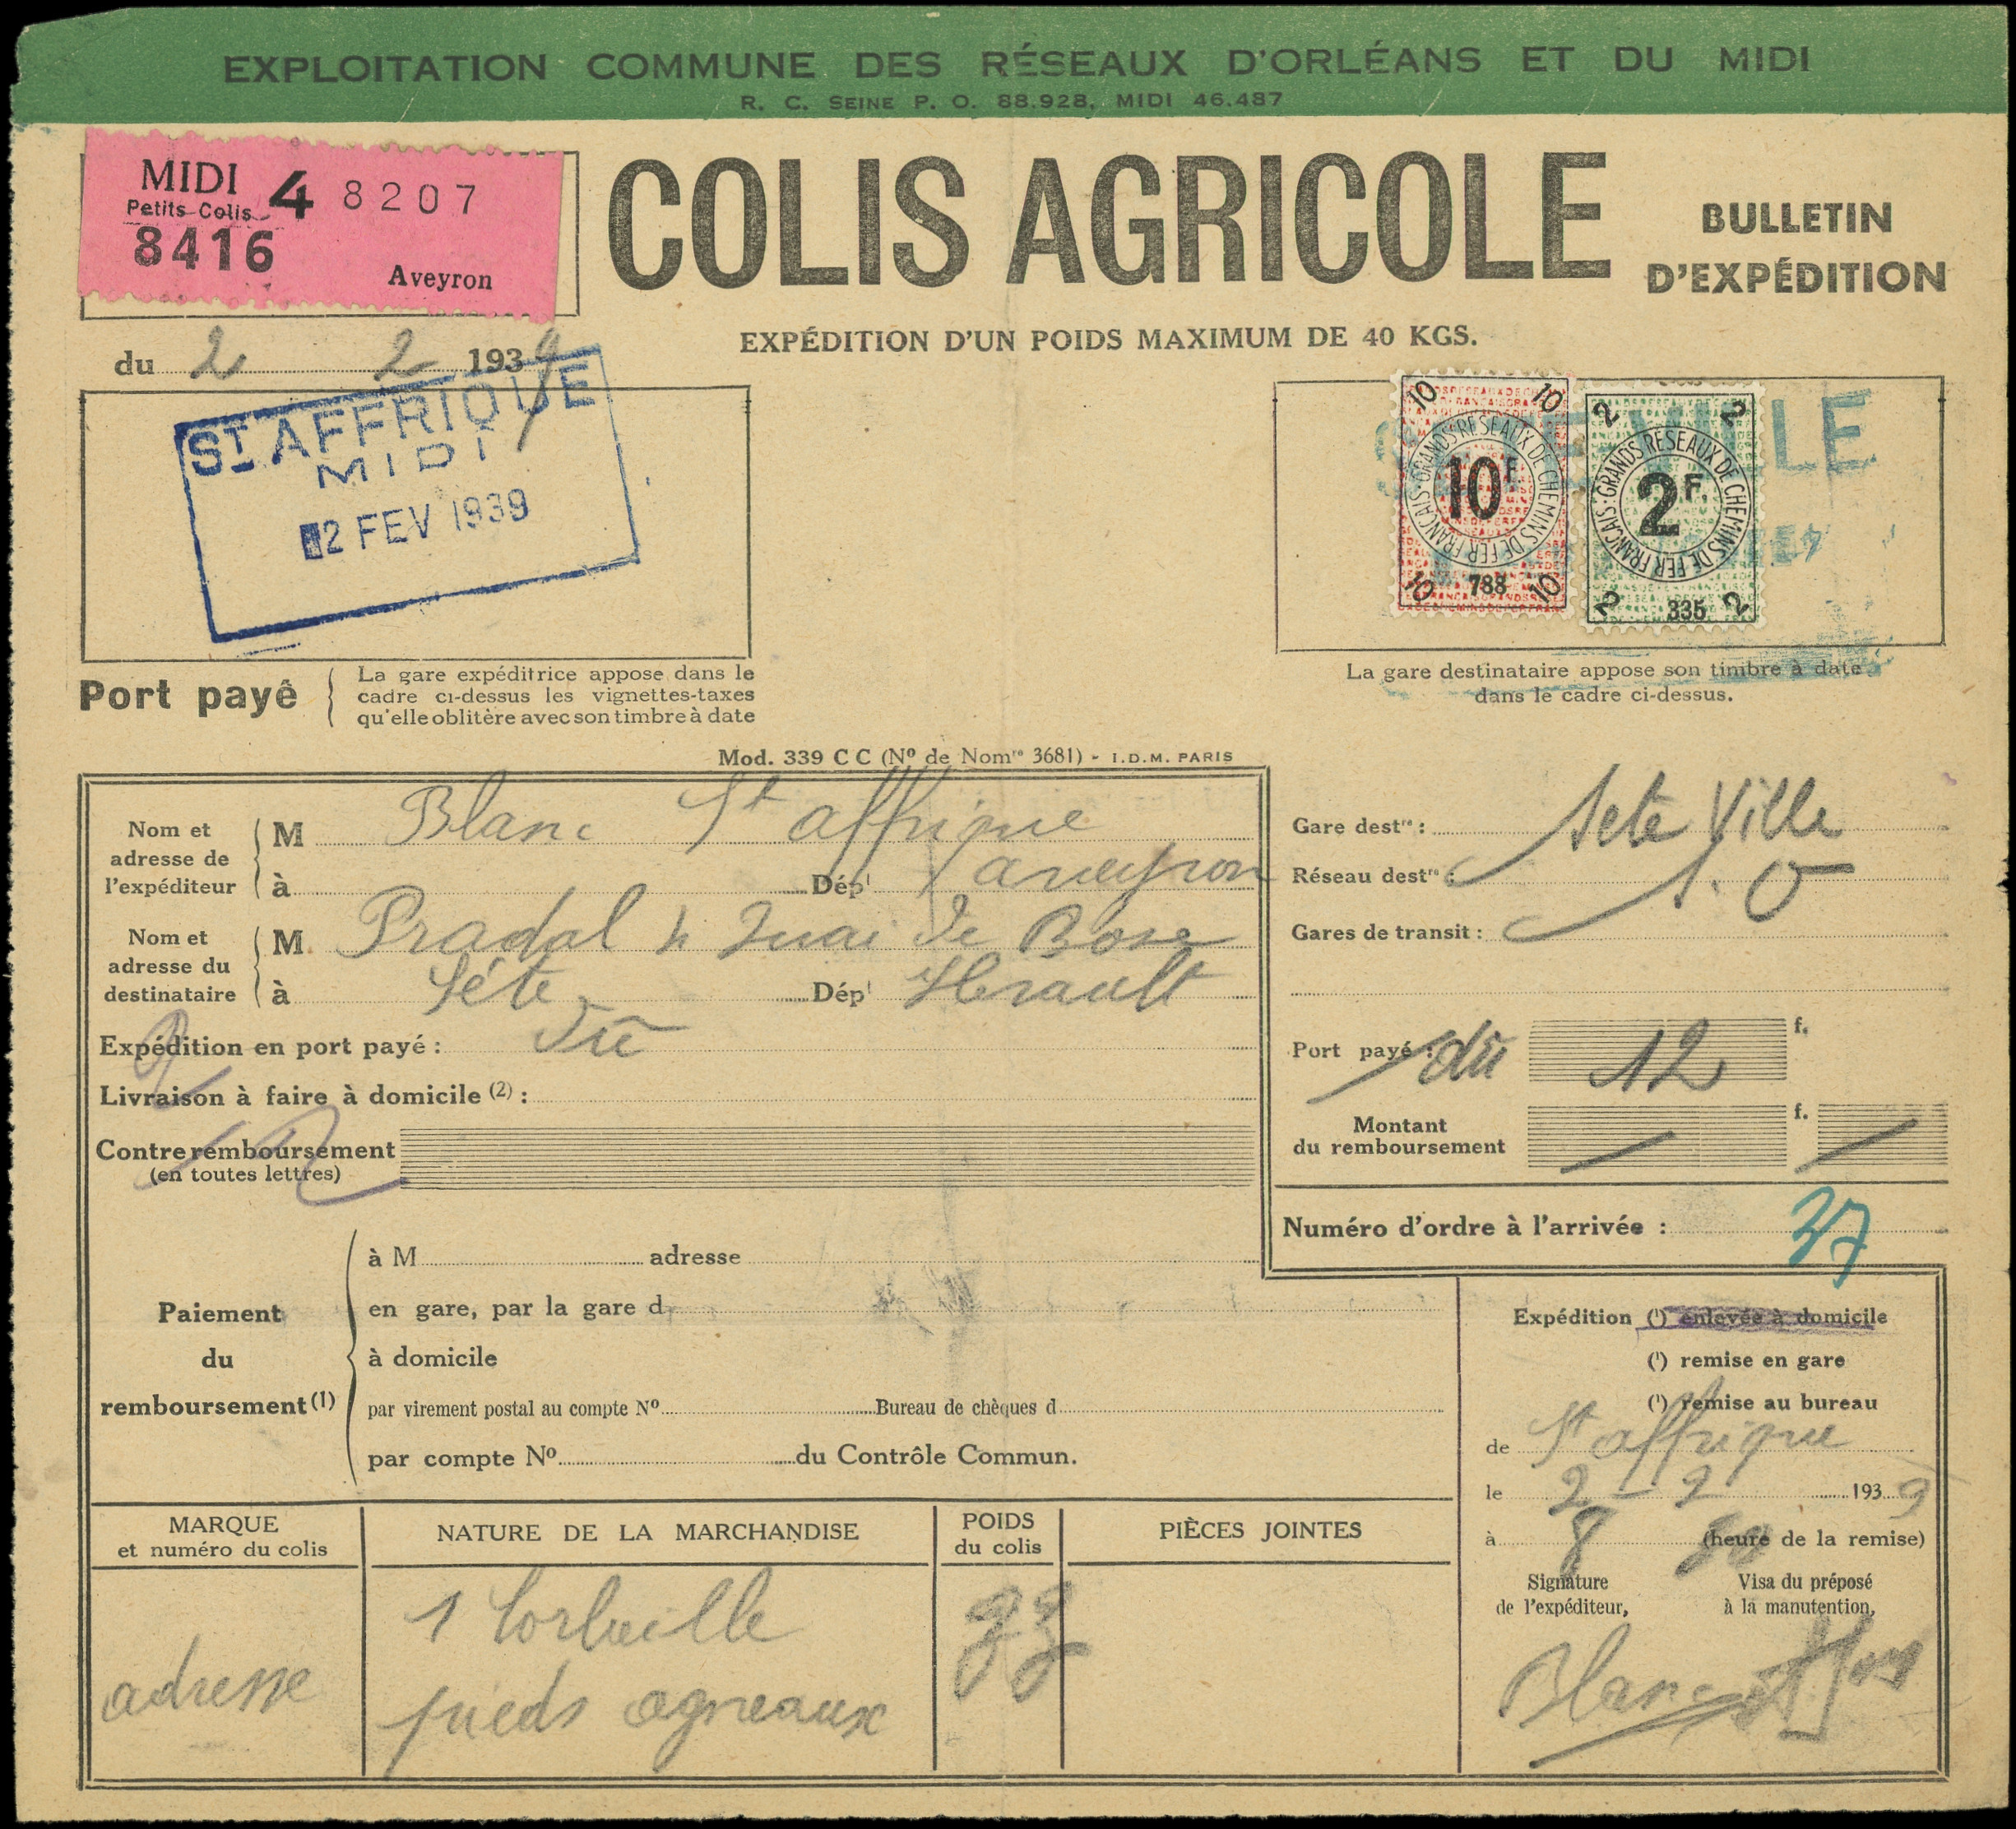 EXPLOITATION COMMUNE DES RÉSEAUX D'ORLÉANS ET DU MIDI
R. C. SEINE P. O. 88.928, MIDI 46.487
MIDI
Petits-Colis
4 8207
8416
Aveyron
COLIS AGRICOLE
BULLETIN
D'EXPÉDITION
EXPÉDITION D'UN POIDS MAXIMUM DE 40 KGS.
du 2 2 1939
ST AFFRIQUE
MIDI
2 FEV 1939
10 10
GRANDS RESEAUX DE CHEMINS DE FER FRANÇAIS
10F
10 788 10
2 2
GRANDS RESEAUX DE CHEMINS DE FER FRANÇAIS
2F.
2 335 2
VILLE
Port payé
La gare expéditrice appose dans le
cadre ci-dessus les vignettes-taxes
qu'elle oblitère avec son timbre à date
La gare destinataire appose son timbre à date
dans le cadre ci-dessus.
Mod. 339 C C (No de Nomre 3681) - I.D.M. PARIS
Nom et
adresse de
l'expéditeur
M Blanc St affrique
à Dépt aveyron
Nom et
adresse du
destinataire
M Pradal 4 Quai de Bosc
à Séte Dépt Herault
Expédition en port payé : Dû
Livraison à faire à domicile (2) :
Contre remboursement
(en toutes lettres)
Gare destre : Sete Ville
Réseau destre :
Gares de transit :
Port payé : dû 12 f.
Montant
du remboursement
f.
Numéro d'ordre à l'arrivée : 37
Paiement
du
remboursement (1)
à M adresse
en gare, par la gare d
à domicile
par virement postal au compte No Bureau de chèques d
par compte No du Contrôle Commun.
Expédition (1) enlevée à domicile
(1) remise en gare
(1) remise au bureau
de St affrique
le 2 - 2 1939
à 8 (heure de la remise)
Signature
de l'expéditeur,
Visa du préposé
à la manutention,
Blanc
MARQUE
et numéro du colis
NATURE DE LA MARCHANDISE
POIDS
du colis
PIÈCES JOINTES
adresse
1 Corbeille
pieds agneaux